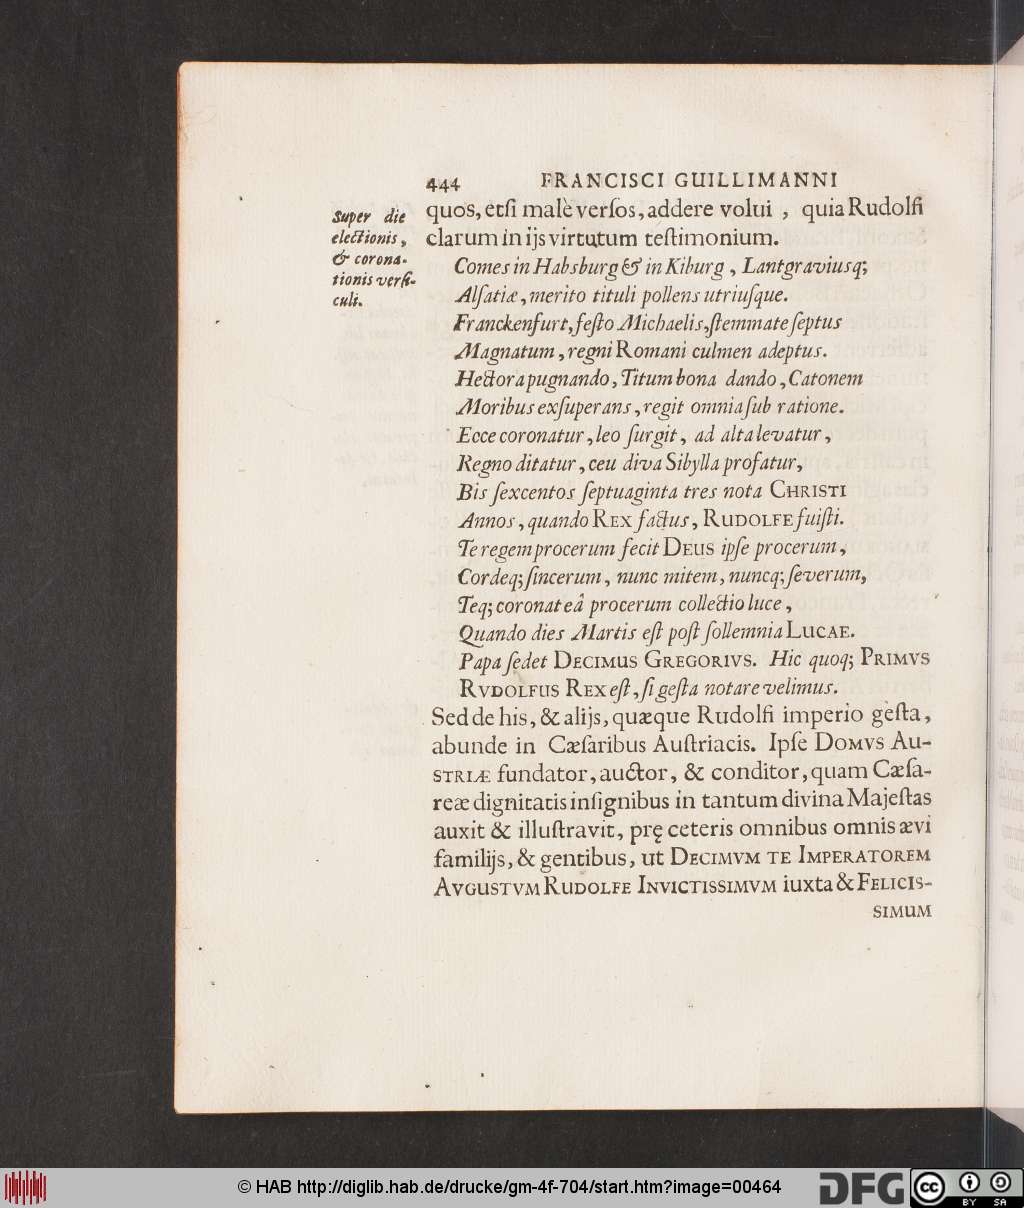 444 FRANCISCI GUILLIMANNI
Super die
electionis,
& corona-
tionis versi-
culi.
quos, etsi malè versos, addere volui , quia Rudolfi
clarum in ijs virtutum testimonium.
Comes in Habsburg & in Kiburg , Lantgraviusq;
Alsatiæ, merito tituli pollens utriusque.
Franckenfurt, festo Michaelis, stemmate septus
Magnatum, regni Romani culmen adeptus.
Hectora pugnando, Titum bona dando, Catonem
Moribus exsuperans, regit omnia sub ratione.
Ecce coronatur, leo surgit, ad alta levatur,
Regno ditatur, ceu diva Sibylla profatur,
Bis sexcentos septuaginta tres nota CHRISTI
Annos, quando REX factus, RUDOLFE fuisti.
Te regem procerum fecit DEUS ipse procerum,
Cordeq; sincerum, nunc mitem, nuncq; severum,
Teq; coronat eâ procerum collectio luce,
Quando dies Martis est post sollemnia LUCAE.
Papa sedet DECIMUS GREGORIVS. Hic quoq; PRIMVS
RVDOLFUS REX est, si gesta notare velimus.
Sed de his, & alijs, quæque Rudolfi imperio gesta,
abunde in Cæsaribus Austriacis. Ipse DOMVS AU-
STRIÆ fundator, auctor, & conditor, quam Cæsa-
reæ dignitatis insignibus in tantum divina Majestas
auxit & illustravit, prę ceteris omnibus omnis ævi
familijs, & gentibus, ut DECIMVM TE IMPERATOREM
AVGUSTVM RUDOLFE INVICTISSIMVM iuxta & FELICIS-
SIMUM
© HAB http://diglib.hab.de/drucke/gm-4f-704/start.htm?image=00464
DFG
cc BY SA